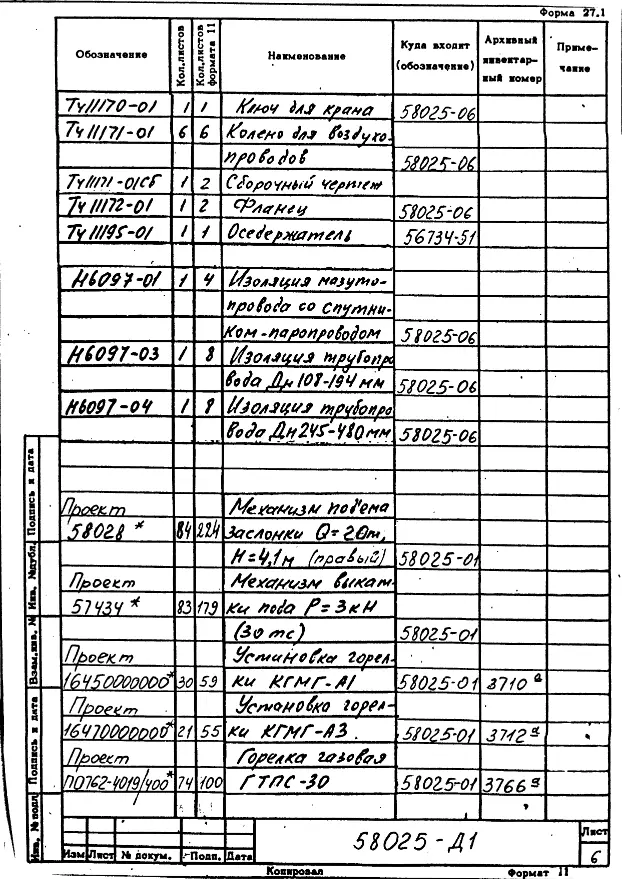 Форма 27.1
Обозначение Кол.листов Кол.листов формата 11 Наименование Куда входит (обозначение) Архивный инвентарный номер Примечание
ТУ11170-01 1 1 Ключ для крана 58025-06
ТУ11171-01 6 6 Колено для воздухо-
проводов 58025-06
ТУ11171-01СБ 1 2 Сборочный чертеж
ТУ11172-01 1 2 Фланец 58025-06
ТУ11195-01 1 1 Оседержатель 56734-51
Н6097-01 1 4 Изоляция мазуто-
провода со спутни-
ком-паропроводом 58025-06
Н6097-03 1 8 Изоляция трубопро
вода Дн 108-194 мм 58025-06
Н6097-04 1 8 Изоляция трубопро
вода Дн 245-480 мм 58025-06
Проект Механизм подъема
58028* 84 224 заслонки Q=20т,
Н=4,1м (правый) 58025-01
Проект Механизм выкат-
57434* 83 179 ки пода Р=3кН
(30 тс) 58025-01
Проект Установка горел-
16450000000* 30 59 ки КГМГ-А1 58025-01 3710а
Проект Установка горел-
16470000000* 21 55 ки КГМГ-А3. 58025-01 3712а
Проект Горелка газовая
П0762-4019/400* 74 100 ГТПС-30 58025-01 3766а
Инв. № подл. Подпись и дата Взам.инв. № Инв. № дубл. Подпись и дата
58025-Д1
Лист
6
Изм Лист № докум. Подп. Дата
Копировал Формат 11